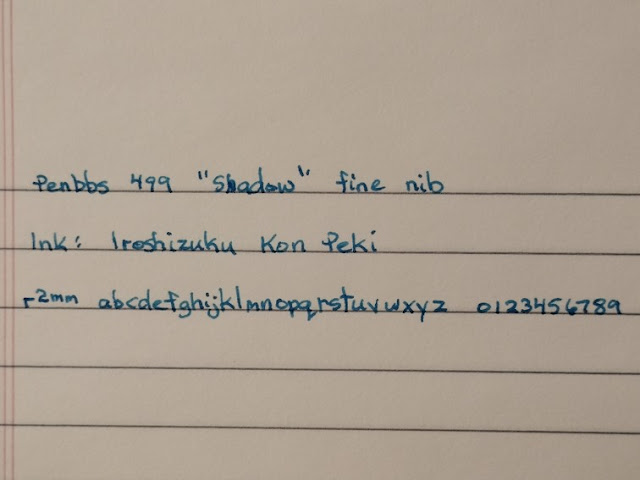 Penbbs 499 "Shadow" fine nib
Ink: Iroshizuku Kon Peki
2mm abcdefghijklmnopqrstuvwxyz 0123456789